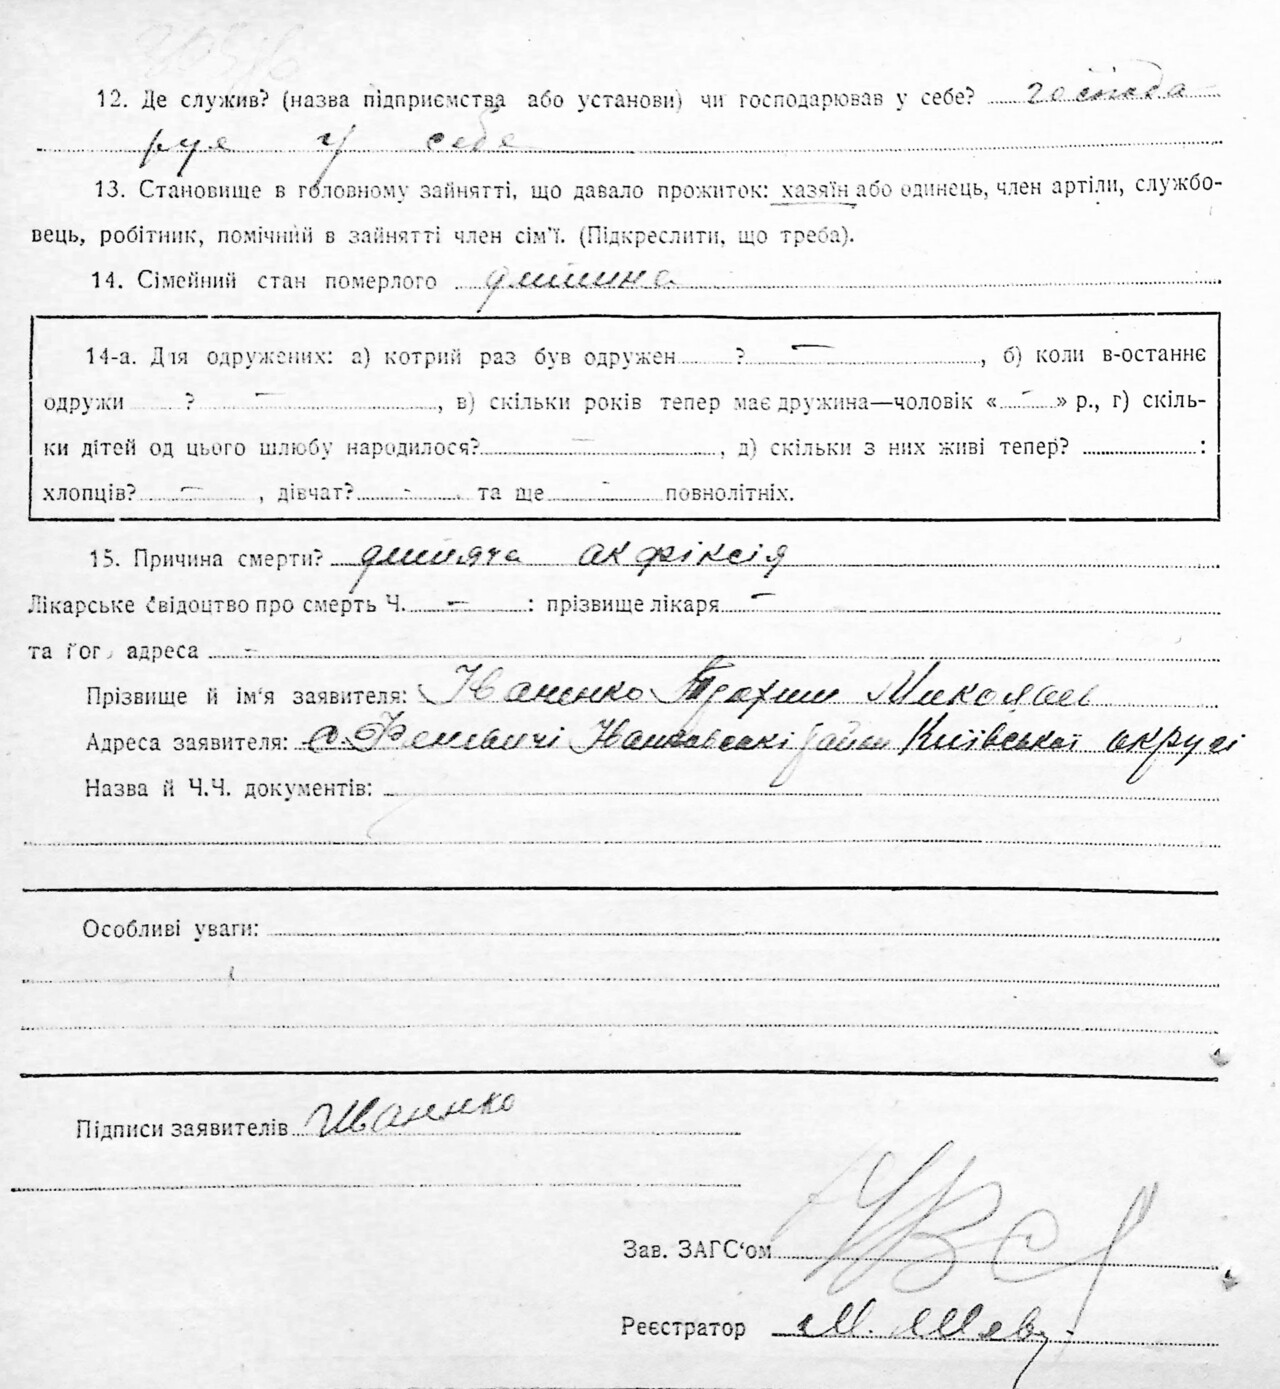 12. Де служив? (назва підприємства або установи) чи господарював у себе? господа
рує у себе
13. Становище в головному зайнятті, що давало прожиток: хазяїн або одинець, член артіли, службо-
вець, робітник, помічний в зайнятті член сім'ї. (Підкреслити, що треба).
14. Сімейний стан померлого дитина
14-а. Для одружених: а) котрий раз був одружен ? —, б) коли в-останнє
одружи ? —, в) скільки років тепер має дружина—чоловік «—» р., г) скіль-
ки дітей од цього шлюбу народилося? —, д) скільки з них живі тепер? :
хлопців? —, дівчат? - та ще - повнолітніх.
15. Причина смерти? дитяча акфіксія
Лікарське свідоцтво про смерть Ч. — : прізвище лікаря —
та його адреса -
Прізвище й ім'я заявителя: Іваненко Трохим Миколаєв
Адреса заявителя: с. Феневичі Іванковські район Київської округи
Назва й Ч.Ч. документів:
Особливі уваги:
Підписи заявителів Іваненко
Зав. ЗАГС'ом
Реєстратор М.